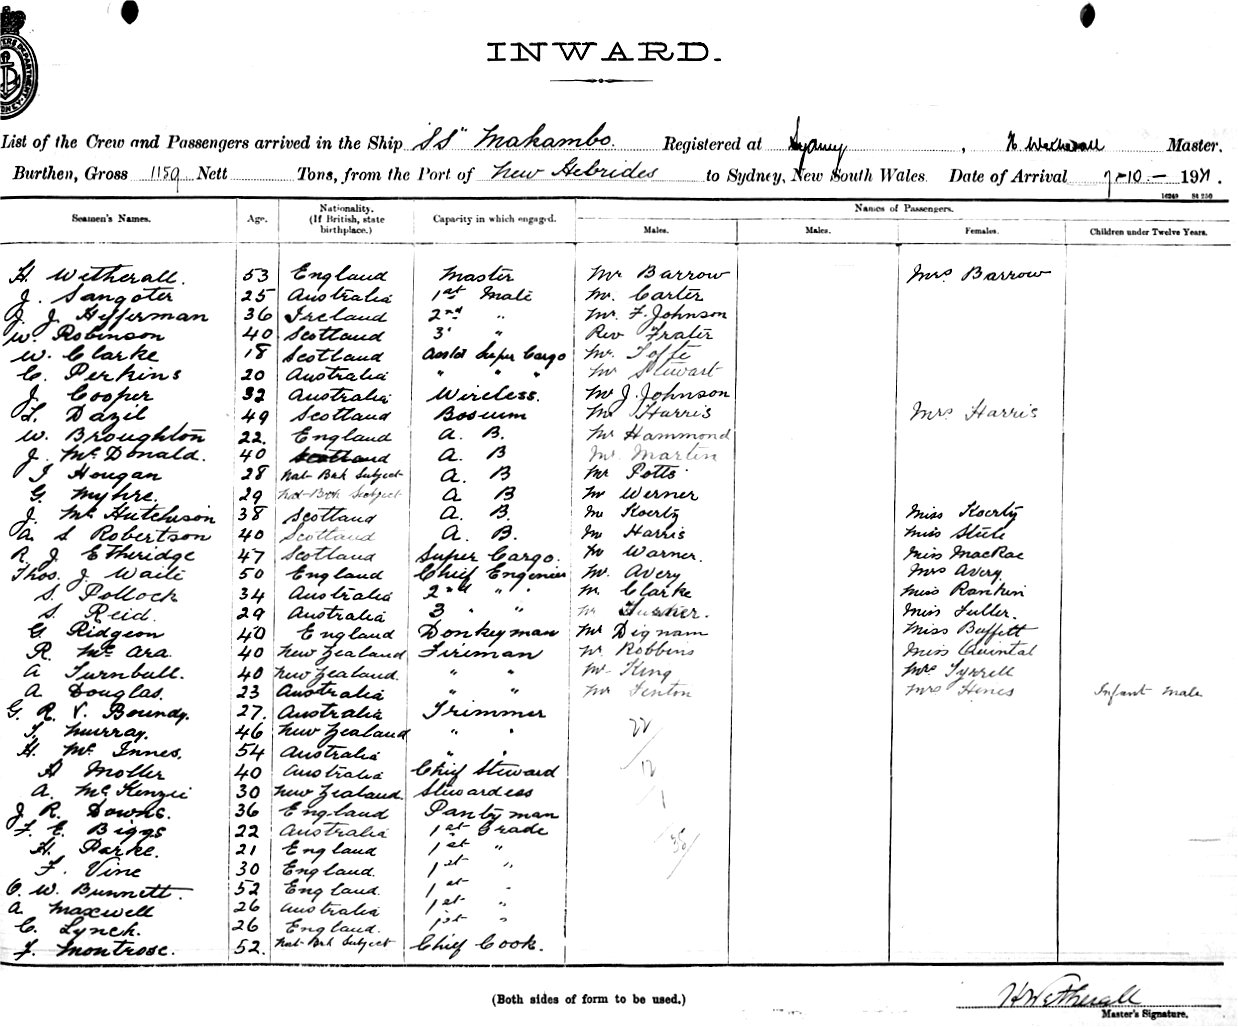 INWARD.
List of the Crew and Passengers arrived in the Ship "SS" Makambo. Registered at Sydney, H. Wetherall Master.
Burthen, Gross 1159 Nett Tons, from the Port of New Hebrides to Sydney, New South Wales. Date of Arrival 7-10-1921.
16249 St 250
Seamen's Names. Age. Nationality. (If British, state birthplace.) Capacity in which engaged. Names of Passengers.
Males. Males. Females. Children under Twelve Years.
H. Witherall. 53 England Master Mr Barrow Mrs Barrow
J. Sangster 25 Australia 1st Mate Mr. Carter
J. J. Hefferman 36 Ireland 2nd " Mr. F. Johnson
W. Robinson 40 Scotland 3' " Rev Frater
W. Clarke 18 Scotland Asst Super Cargo Mr.
C. Perkins 20 Australia " " " Mr Stewart
J. Cooper 32 Australia Wireless. Mr J. Johnson
L. Dazil 49 Scotland Bosuum Mr Harris Mrs Harris
W. Broughton 22. England A. B. Mr Hammond
J. McDonald. 40 Scotland A. B Mr. Martin
J Hougan 28 Nat-Brit Subject A. B Mr Potts
G. Myhre. 29 Nat-Brit Subject A B Mr Werner
J. McHutchison 38 Scotland A. B. Mr Koertz Miss Koertz
A. S Robertson 40 Scotland A. B. Mr Harris Miss Steele
R. J Etheridge 47 Scotland Super Cargo. Mr Warner. Miss MacRae
Thos. J. Waite 50 England Chief Engineer Mr. Avery Mrs Avery.
S. Pollock 34 Australia 2nd " " Mr. Clarke Miss Rankin
S. Reid. 29 Australia 3 " " Mr Miss Fuller.
G. Ridgeon 40 England Donkeyman Mr Dignam Miss Buffett
R. McAra. 40 New Zealand Fireman Mr Robbins Miss Quintal
A Turnbull. 40 New Zealand. " " Mr. King Mrs Tyrrell
A. Douglas. 23 Australia " " Mr Fenton Mrs Hines Infant Male
G. R. V. Boundy. 27. Australia Trimmer
T. Murray. 46 New Zealand " " 22/
H. McInnes. 54 Australia " "
H Moller 40 Australia Chief Steward 12/
A. McKenzie 30 New Zealand. Stewardess /1
J R. Downs. 36 England Pantryman
F. E. Biggs 22 Australia 1st Grade
H. Parke. 21 England 1st "
F. Vine 30 England. 1st "
C. W. Bunnett. 52 England. 1st "
A Maxwell 26 Australia 1st "
C. Lynch. 26 England. 1st "
J. Montrose. 52. Nat-Brit Subject Chief Cook.
(Both sides of form to be used.)
H Wetherall
Master's Signature.